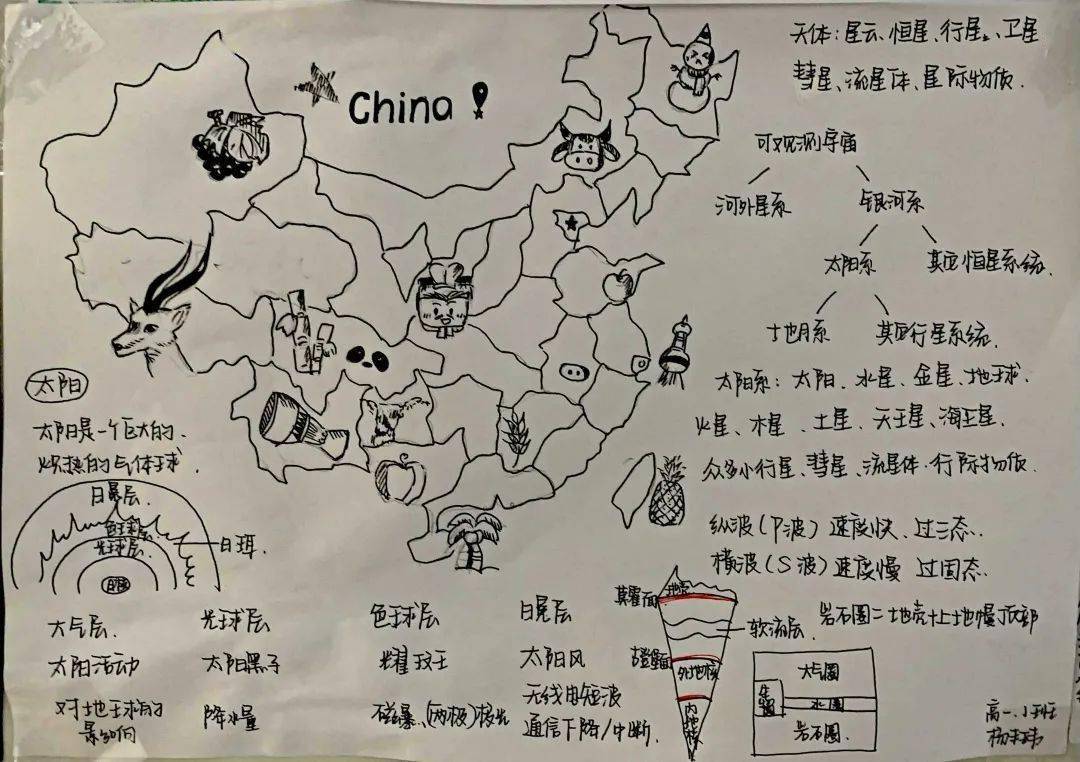 China!
天体：星云、恒星、行星、卫星
彗星、流星体、星际物质.
可观测宇宙
河外星系 银河系
太阳系 其它恒星系统.
地月系 其它行星系统.
太阳系：太阳、水星、金星、地球.
火星、木星、土星、天王星、海王星.
众多小行星、彗星、流星体.行际物质.
纵波(P波) 速度快、过三态.
横波(S波)速度慢 过固态.
太阳
太阳是一个巨大的.
炽热的气体球.
日冕层.
色球层
光球层.
日珥.
大气层. 光球层 色球层 日冕层
太阳活动 太阳黑子 耀斑 太阳风
对地球的影响 降水量 磁暴、(两极)极光 无线电短波
通信下降/中断.
地壳
莫霍面
软流层
岩石圈=地壳+上地幔顶部
古登堡面
外地核
内地核
大气圈
生物圈
水圈
岩石圈
高一.